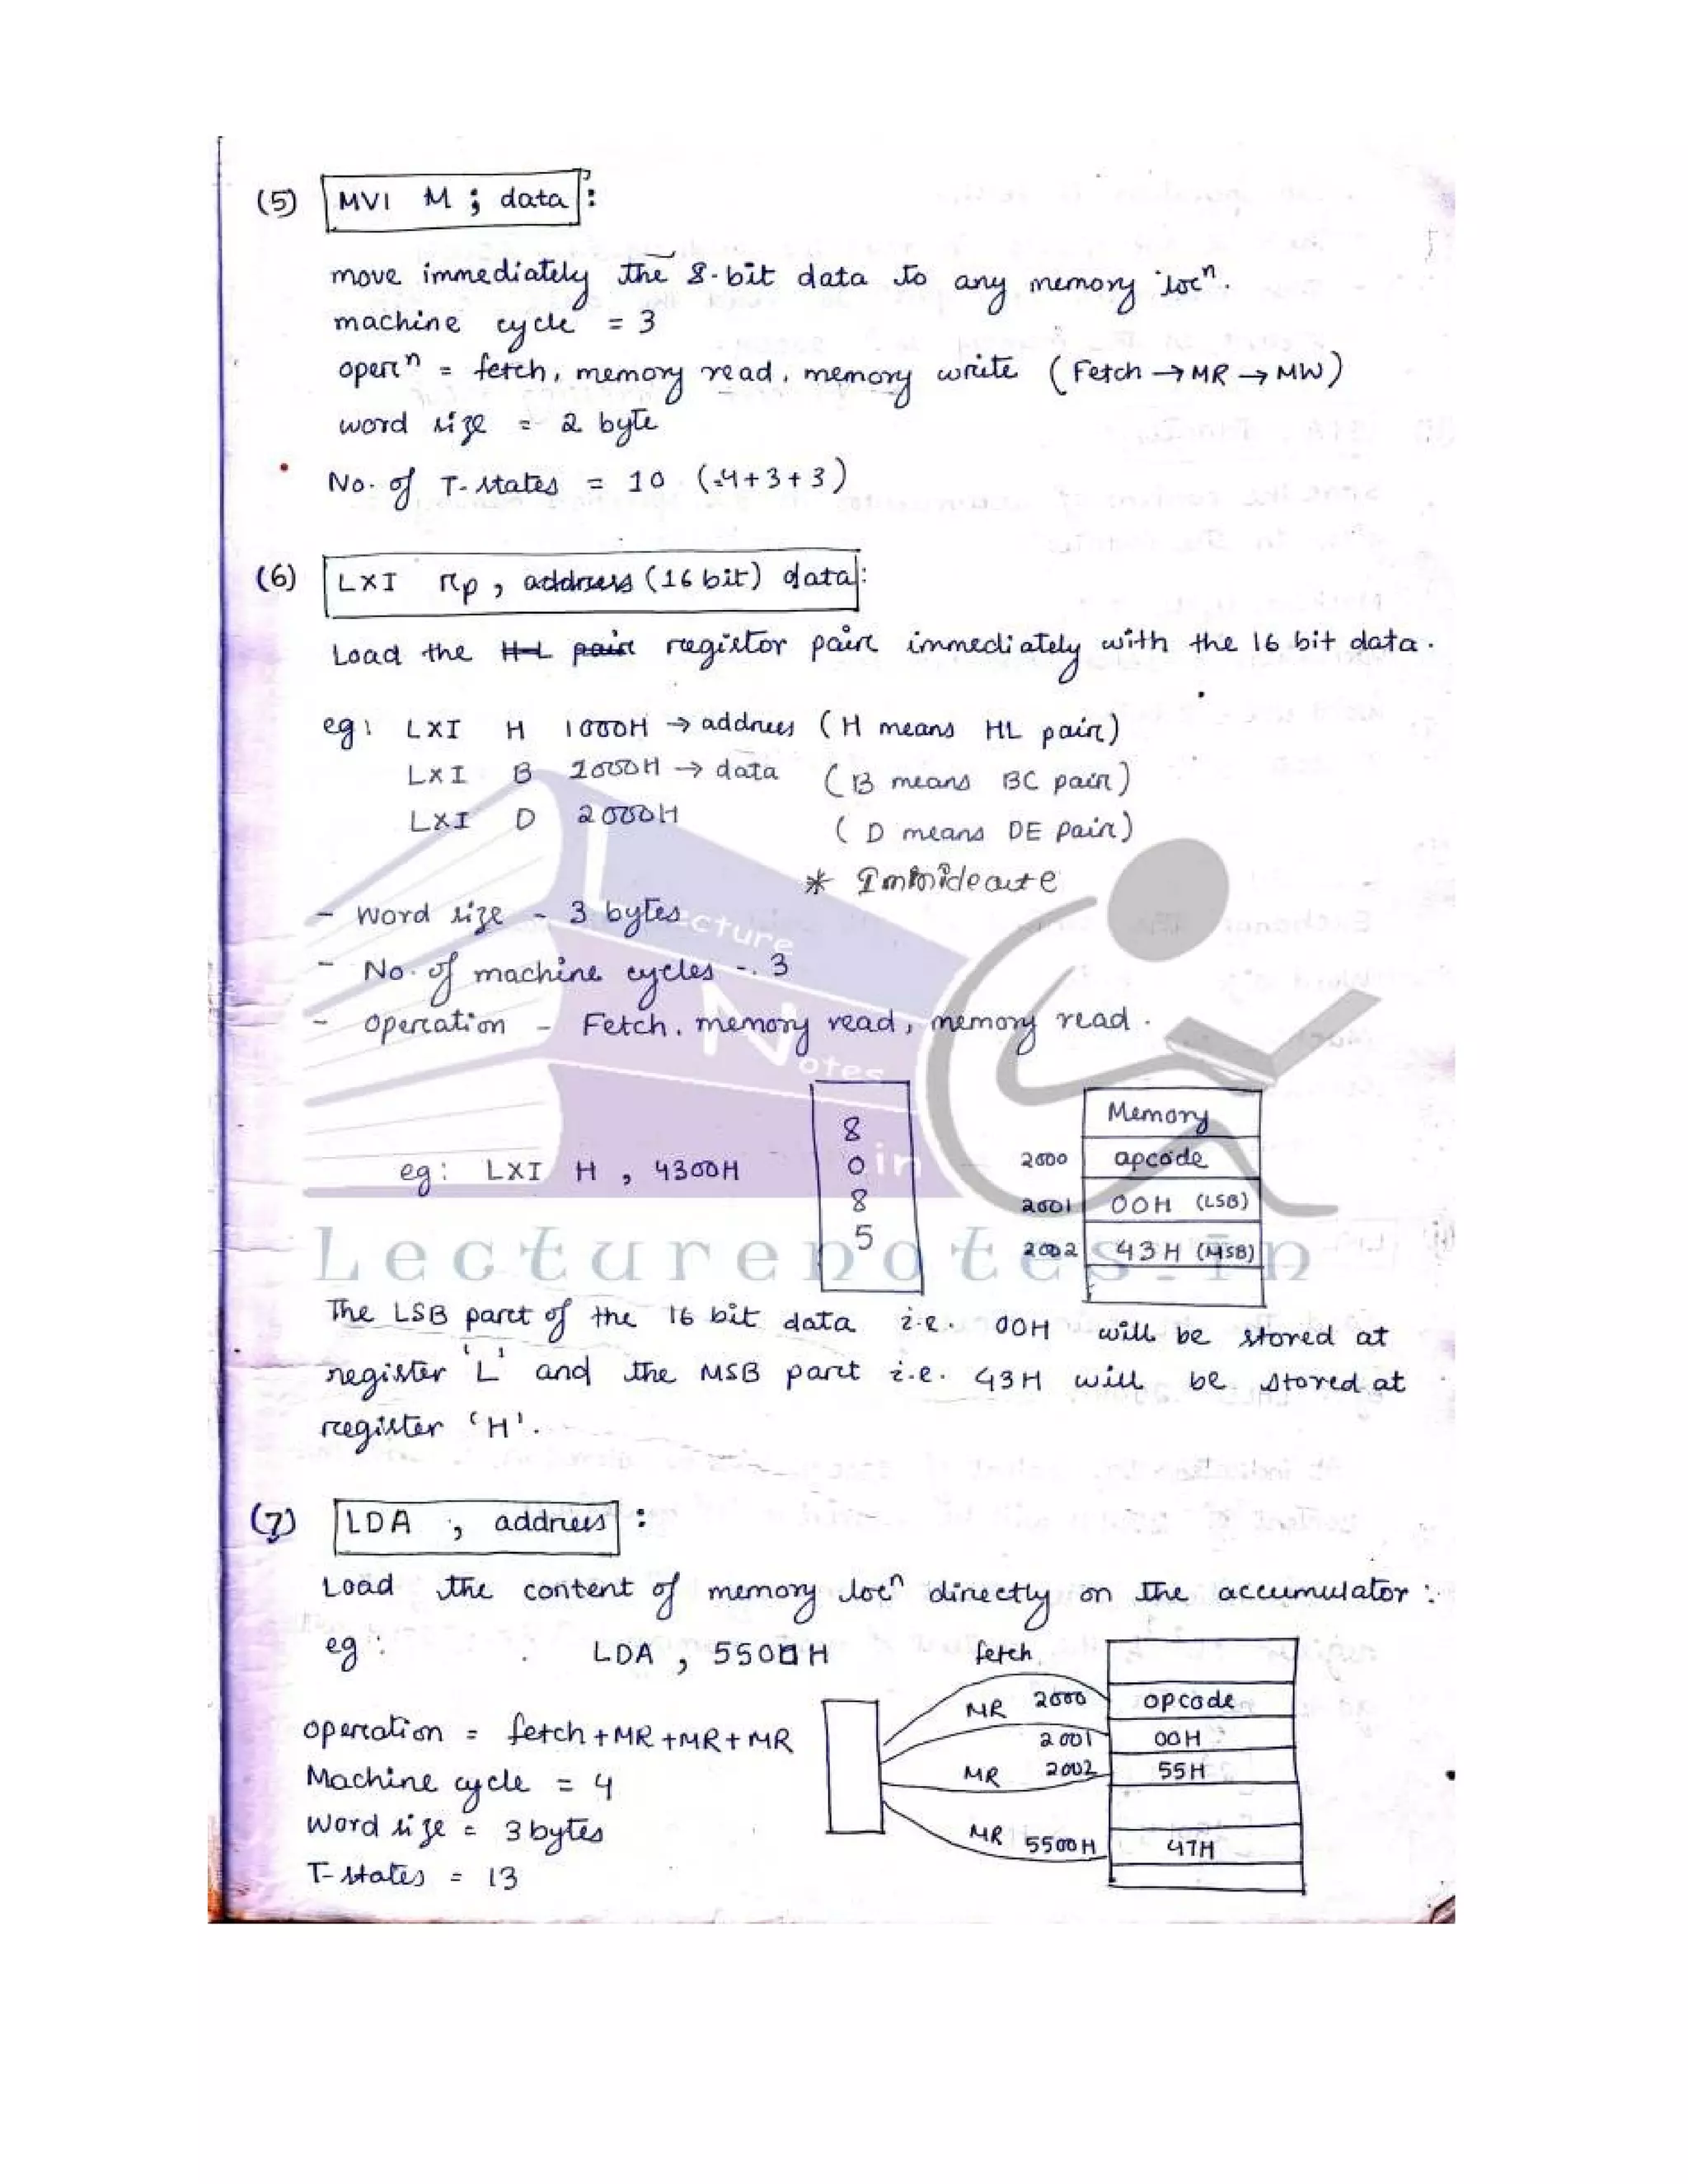 (5) MVI M ; data :
move immediately the 8-bit data to any memory locⁿ.
machine cycle = 3
operⁿ = fetch, memory read, memory write (Fetch → MR → MW)
word size = 2 byte
No. of T-states = 10 (4+3+3)
(6) LXI rp , address (16 bit) data :
Load the H-L pair registor pair immediately with the 16 bit data.
eg: LXI H 1000H → address (H means HL pair)
LXI B 1000H → data (B means BC pair)
LXI D 2000H (D means DE pair)
* Immideate
- Word size - 3 bytes
- No. of machine cycles - 3
- Operation - Fetch, memory read, memory read.
Memory
8
2000 opcode
eg: LXI H , 4300H
0
8
2001 00H (LSB)
5
2002 43H (MSB)
Lecture Notes.in
Lecturenotes.in
The LSB part of the 16 bit data i.e. 00H will be stored at
register 'L' and the MSB part i.e. 43H will be stored at
register 'H'.
(7) LDA , address :
Load the content of memory locⁿ directly on the accumulator :
eg : LDA , 5500H fetch
MR 2000 opcode
operation = fetch+MR+MR+MR
2001 00H
Machine cycle = 4
MR 2002 55H
Word size = 3 bytes
MR 5500H 47H
T-states = 13